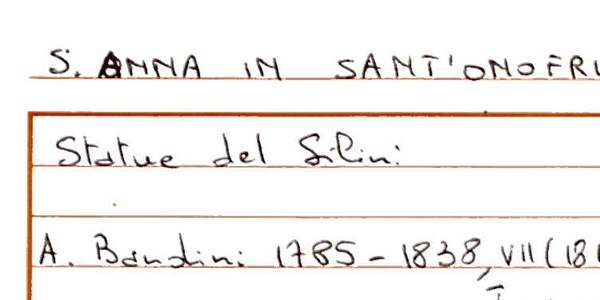 S. ANNA IN SANT'ONOFRI
Statue del Silini
A. Bandini 1785-1838, VII (18